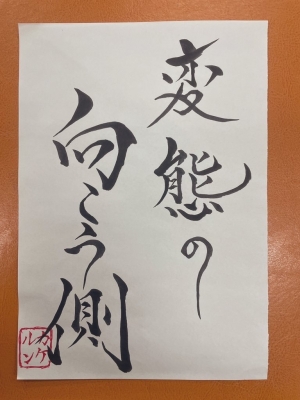 変態の
向こう側
カケルン